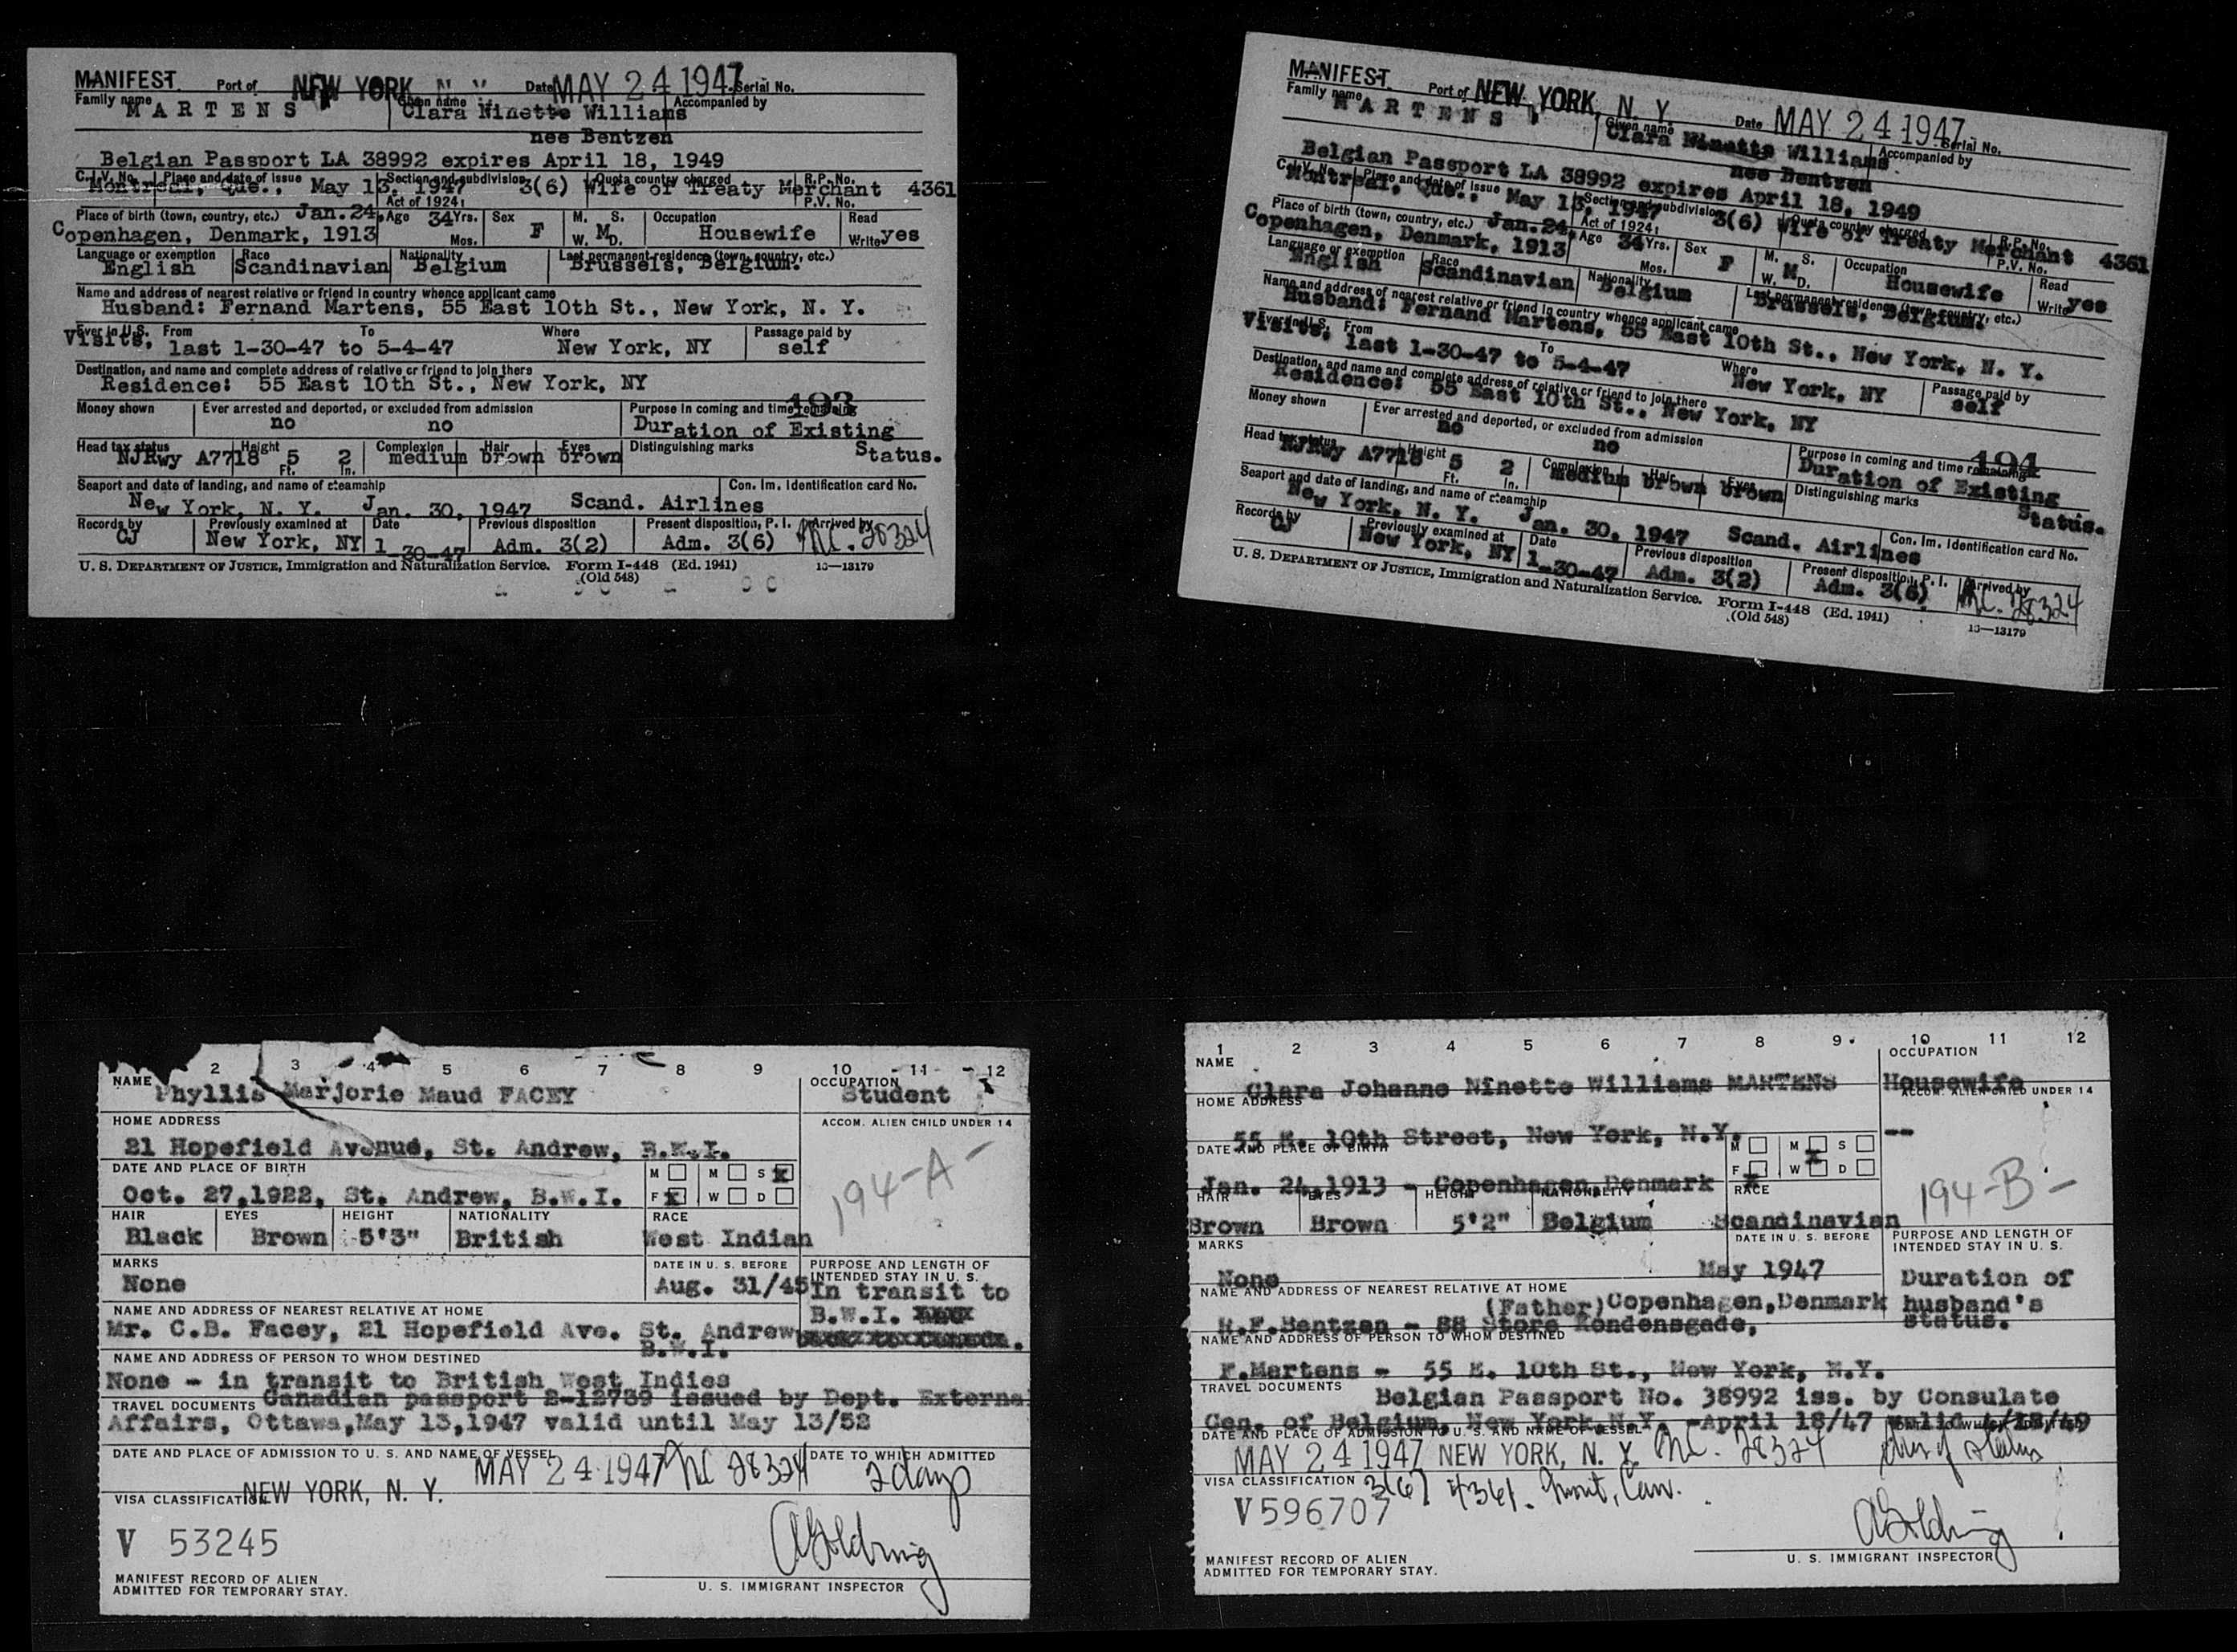 MANIFEST Port of NEW YORK N. Y. Date MAY 24 1947 Serial No.
Family name Given name Accompanied by
MARTENS Clara Ninette Williams
nee Bentzen
Belgian Passport LA 38992 expires April 18, 1949
C.I.V. No. Place and date of issue Section and subdivision Quota country charged R.P. No.
Montreal, Que., May 13, 1947 3(6) Wife of Treaty Merchant 4361
Act of 1924: P.V. No.
Place of birth (town, country, etc.) Jan. 24, Age 34 Yrs. Sex M. S. Occupation Read
Copenhagen, Denmark, 1913 Mos. F W. M D. Housewife Write yes
Language or exemption Race Nationality Last permanent residence (town, country, etc.)
English Scandinavian Belgium Brussels, Belgium.
Name and address of nearest relative or friend in country whence applicant came
Husband: Fernand Martens, 55 East 10th St., New York, N. Y.
Ever in U.S. From To Where Passage paid by
Visits, last 1-30-47 to 5-4-47 New York, NY self
Destination, and name and complete address of relative or friend to join there
Residence: 55 East 10th St., New York, NY
193
Money shown Ever arrested and deported, or excluded from admission Purpose in coming and time remaining
no no Duration of Existing
Head tax status Height Complexion Hair Eyes Distinguishing marks Status.
NJRwy A7718 5 Ft. 2 In. medium brown brown
Seaport and date of landing, and name of steamship Con. Im. Identification card No.
New York, N. Y. Jan. 30, 1947 Scand. Airlines
Records by Previously examined at Date Previous disposition Present disposition, P. I. Arrived by
CJ New York, NY 1-30-47 Adm. 3(2) Adm. 3(6) NC. 28324
U. S. DEPARTMENT OF JUSTICE, Immigration and Naturalization Service. Form I-448 (Ed. 1941) 16—13179
(Old 548)
MANIFEST Port of NEW YORK, N. Y. Date MAY 24 1947 Serial No.
Family name Given name Accompanied by
MARTENS, Clara Ninette Williams
nee Bentzen
Belgian Passport LA 38992 expires April 18, 1949
C.I.V. No. Place and date of issue Section and subdivision Quota country charged R.P. No.
Montreal, Que., May 13, 1947 3(6) Wife of Treaty Merchant 4361
Act of 1924: P.V. No.
Place of birth (town, country, etc.) Jan. 24, Age 34 Yrs. Sex M. S. Occupation Read
Copenhagen, Denmark, 1913 Mos. F W. M. D. Housewife Write yes
Language or exemption Race Nationality Last permanent residence (town, country, etc.)
English Scandinavian Belgium Brussels, Belgium.
Name and address of nearest relative or friend in country whence applicant came
Husband: Fernand Martens, 55 East 10th St., New York, N. Y.
Ever in U.S. From To Where Passage paid by
Visits, last 1-30-47 to 5-4-47 New York, NY self
Destination, and name and complete address of relative or friend to join there
Residence: 55 East 10th St., New York, NY
194
Money shown Ever arrested and deported, or excluded from admission Purpose in coming and time remaining
no no Duration of Existing
Head tax status Height Complexion Hair Eyes Distinguishing marks Status.
NJRwy A7718 5 Ft. 2 In. medium brown brown
Seaport and date of landing, and name of steamship Con. Im. Identification card No.
New York, N. Y. Jan. 30, 1947 Scand. Airlines
Records by Previously examined at Date Previous disposition Present disposition, P. I. Arrived by
CJ New York, NY 1-30-47 Adm. 3(2) Adm. 3(6) NC. 28324
U. S. DEPARTMENT OF JUSTICE, Immigration and Naturalization Service. Form I-448 (Ed. 1941) 16—13179
(Old 548)
2 3 4 5 6 7 8 9 10 11 12
NAME OCCUPATION
Phyllis Marjorie Maud FACEY Student
HOME ADDRESS ACCOM. ALIEN CHILD UNDER 14
21 Hopefield Avenue, St. Andrew, B.W.I.
DATE AND PLACE OF BIRTH M M S X
Oct. 27,1922, St. Andrew, B.W.I. F X W D
194-A-
HAIR EYES HEIGHT NATIONALITY RACE
Black Brown 5'3" British West Indian
MARKS DATE IN U. S. BEFORE PURPOSE AND LENGTH OF INTENDED STAY IN U. S.
None Aug. 31/45 In transit to
B.W.I.
NAME AND ADDRESS OF NEAREST RELATIVE AT HOME
Mr. C.B. Facey, 21 Hopefield Ave. St. Andrew
B.W.I.
NAME AND ADDRESS OF PERSON TO WHOM DESTINED
None - in transit to British West Indies
TRAVEL DOCUMENTS Canadian passport 2-12739 issued by Dept. External
Affairs, Ottawa,May 13,1947 valid until May 13/52
DATE AND PLACE OF ADMISSION TO U. S. AND NAME OF VESSEL DATE TO WHICH ADMITTED
MAY 24 1947 NC 28324 2 days
VISA CLASSIFICATION NEW YORK, N. Y.
V 53245
AGolding
MANIFEST RECORD OF ALIEN
ADMITTED FOR TEMPORARY STAY. U. S. IMMIGRANT INSPECTOR
1 2 3 4 5 6 7 8 9 10 11 12
NAME OCCUPATION
Clara Johanne Ninette Williams MARTENS Housewife
HOME ADDRESS ACCOM. ALIEN CHILD UNDER 14
55 E. 10th Street, New York, N.Y. --
DATE AND PLACE OF BIRTH M M X S
F X W D
Jan. 24,1913 - Copenhagen,Denmark
194-B-
HAIR EYES HEIGHT NATIONALITY RACE
Brown Brown 5'2" Belgium Scandinavian
MARKS DATE IN U. S. BEFORE PURPOSE AND LENGTH OF INTENDED STAY IN U. S.
None May 1947 Duration of
husband's
status.
NAME AND ADDRESS OF NEAREST RELATIVE AT HOME
(Father) Copenhagen,Denmark
H.F.Bentzen - 88 Store Kondensgade,
NAME AND ADDRESS OF PERSON TO WHOM DESTINED
F.Martens - 55 E. 10th St., New York, N.Y.
TRAVEL DOCUMENTS Belgian Passport No. 38992 iss. by Consulate
Gen. of Belgium, New York,N.Y. -April 18/47 valid 4/18/49
DATE AND PLACE OF ADMISSION TO U. S. AND NAME OF VESSEL
MAY 24 1947 NEW YORK, N. Y. NC. 28324 dur of status
VISA CLASSIFICATION 3(6) 4361. Mont, Can.
V596707
AGolding
MANIFEST RECORD OF ALIEN
ADMITTED FOR TEMPORARY STAY. U. S. IMMIGRANT INSPECTOR